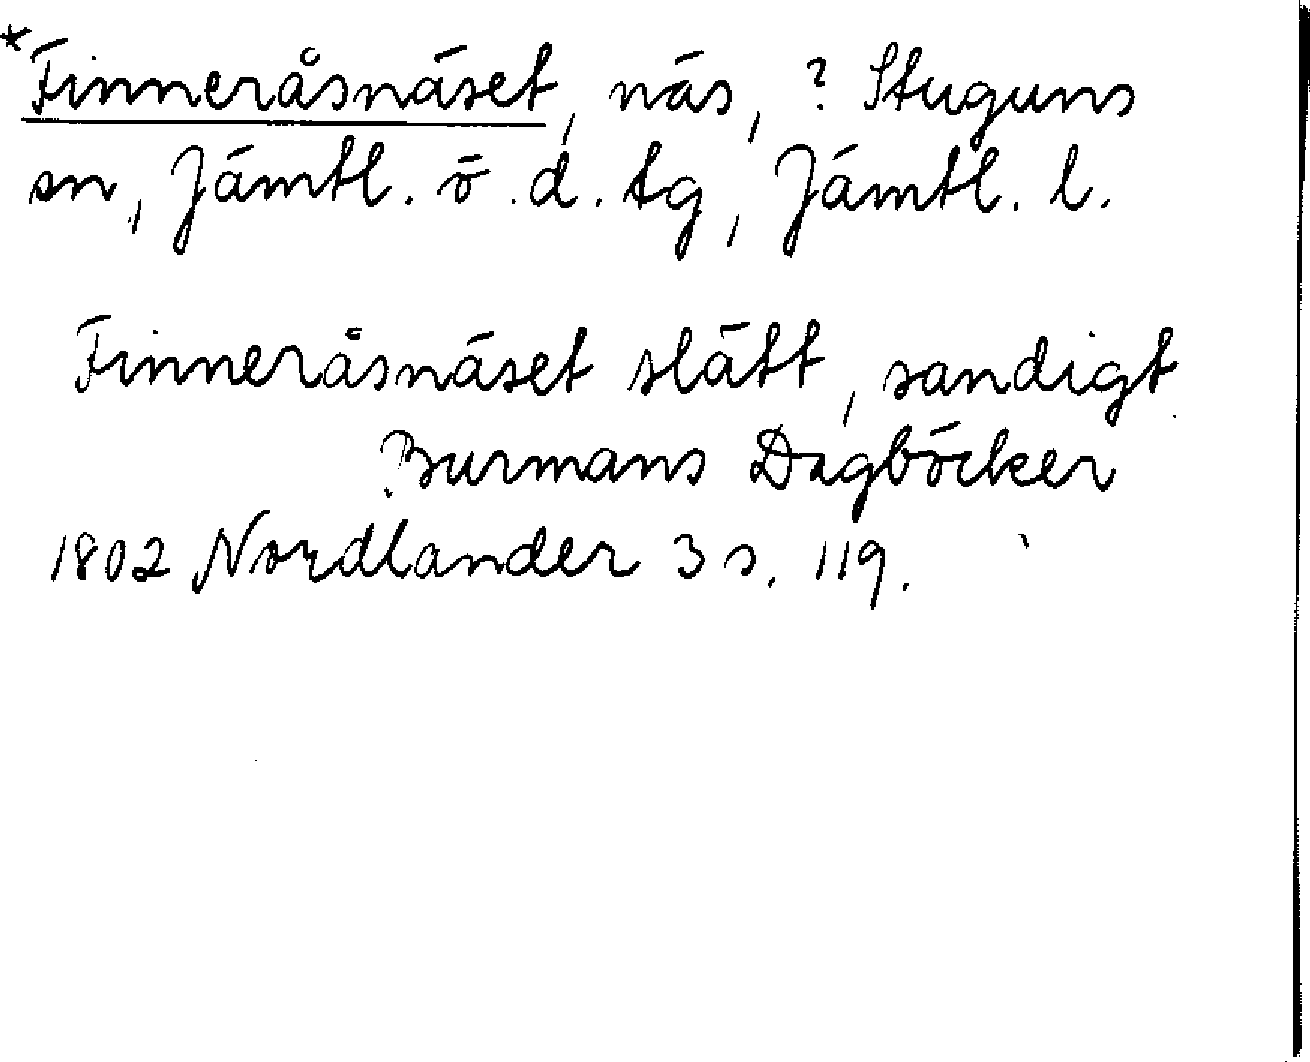 *Finneråsnäset, näs, ? Stuguns
sn, Jämtl. ö. d. tg, Jämtl. l.
Finneråsnäset slätt, sandigt
Burmans Dagböcker
1802 Nordlander 3 s. 119.